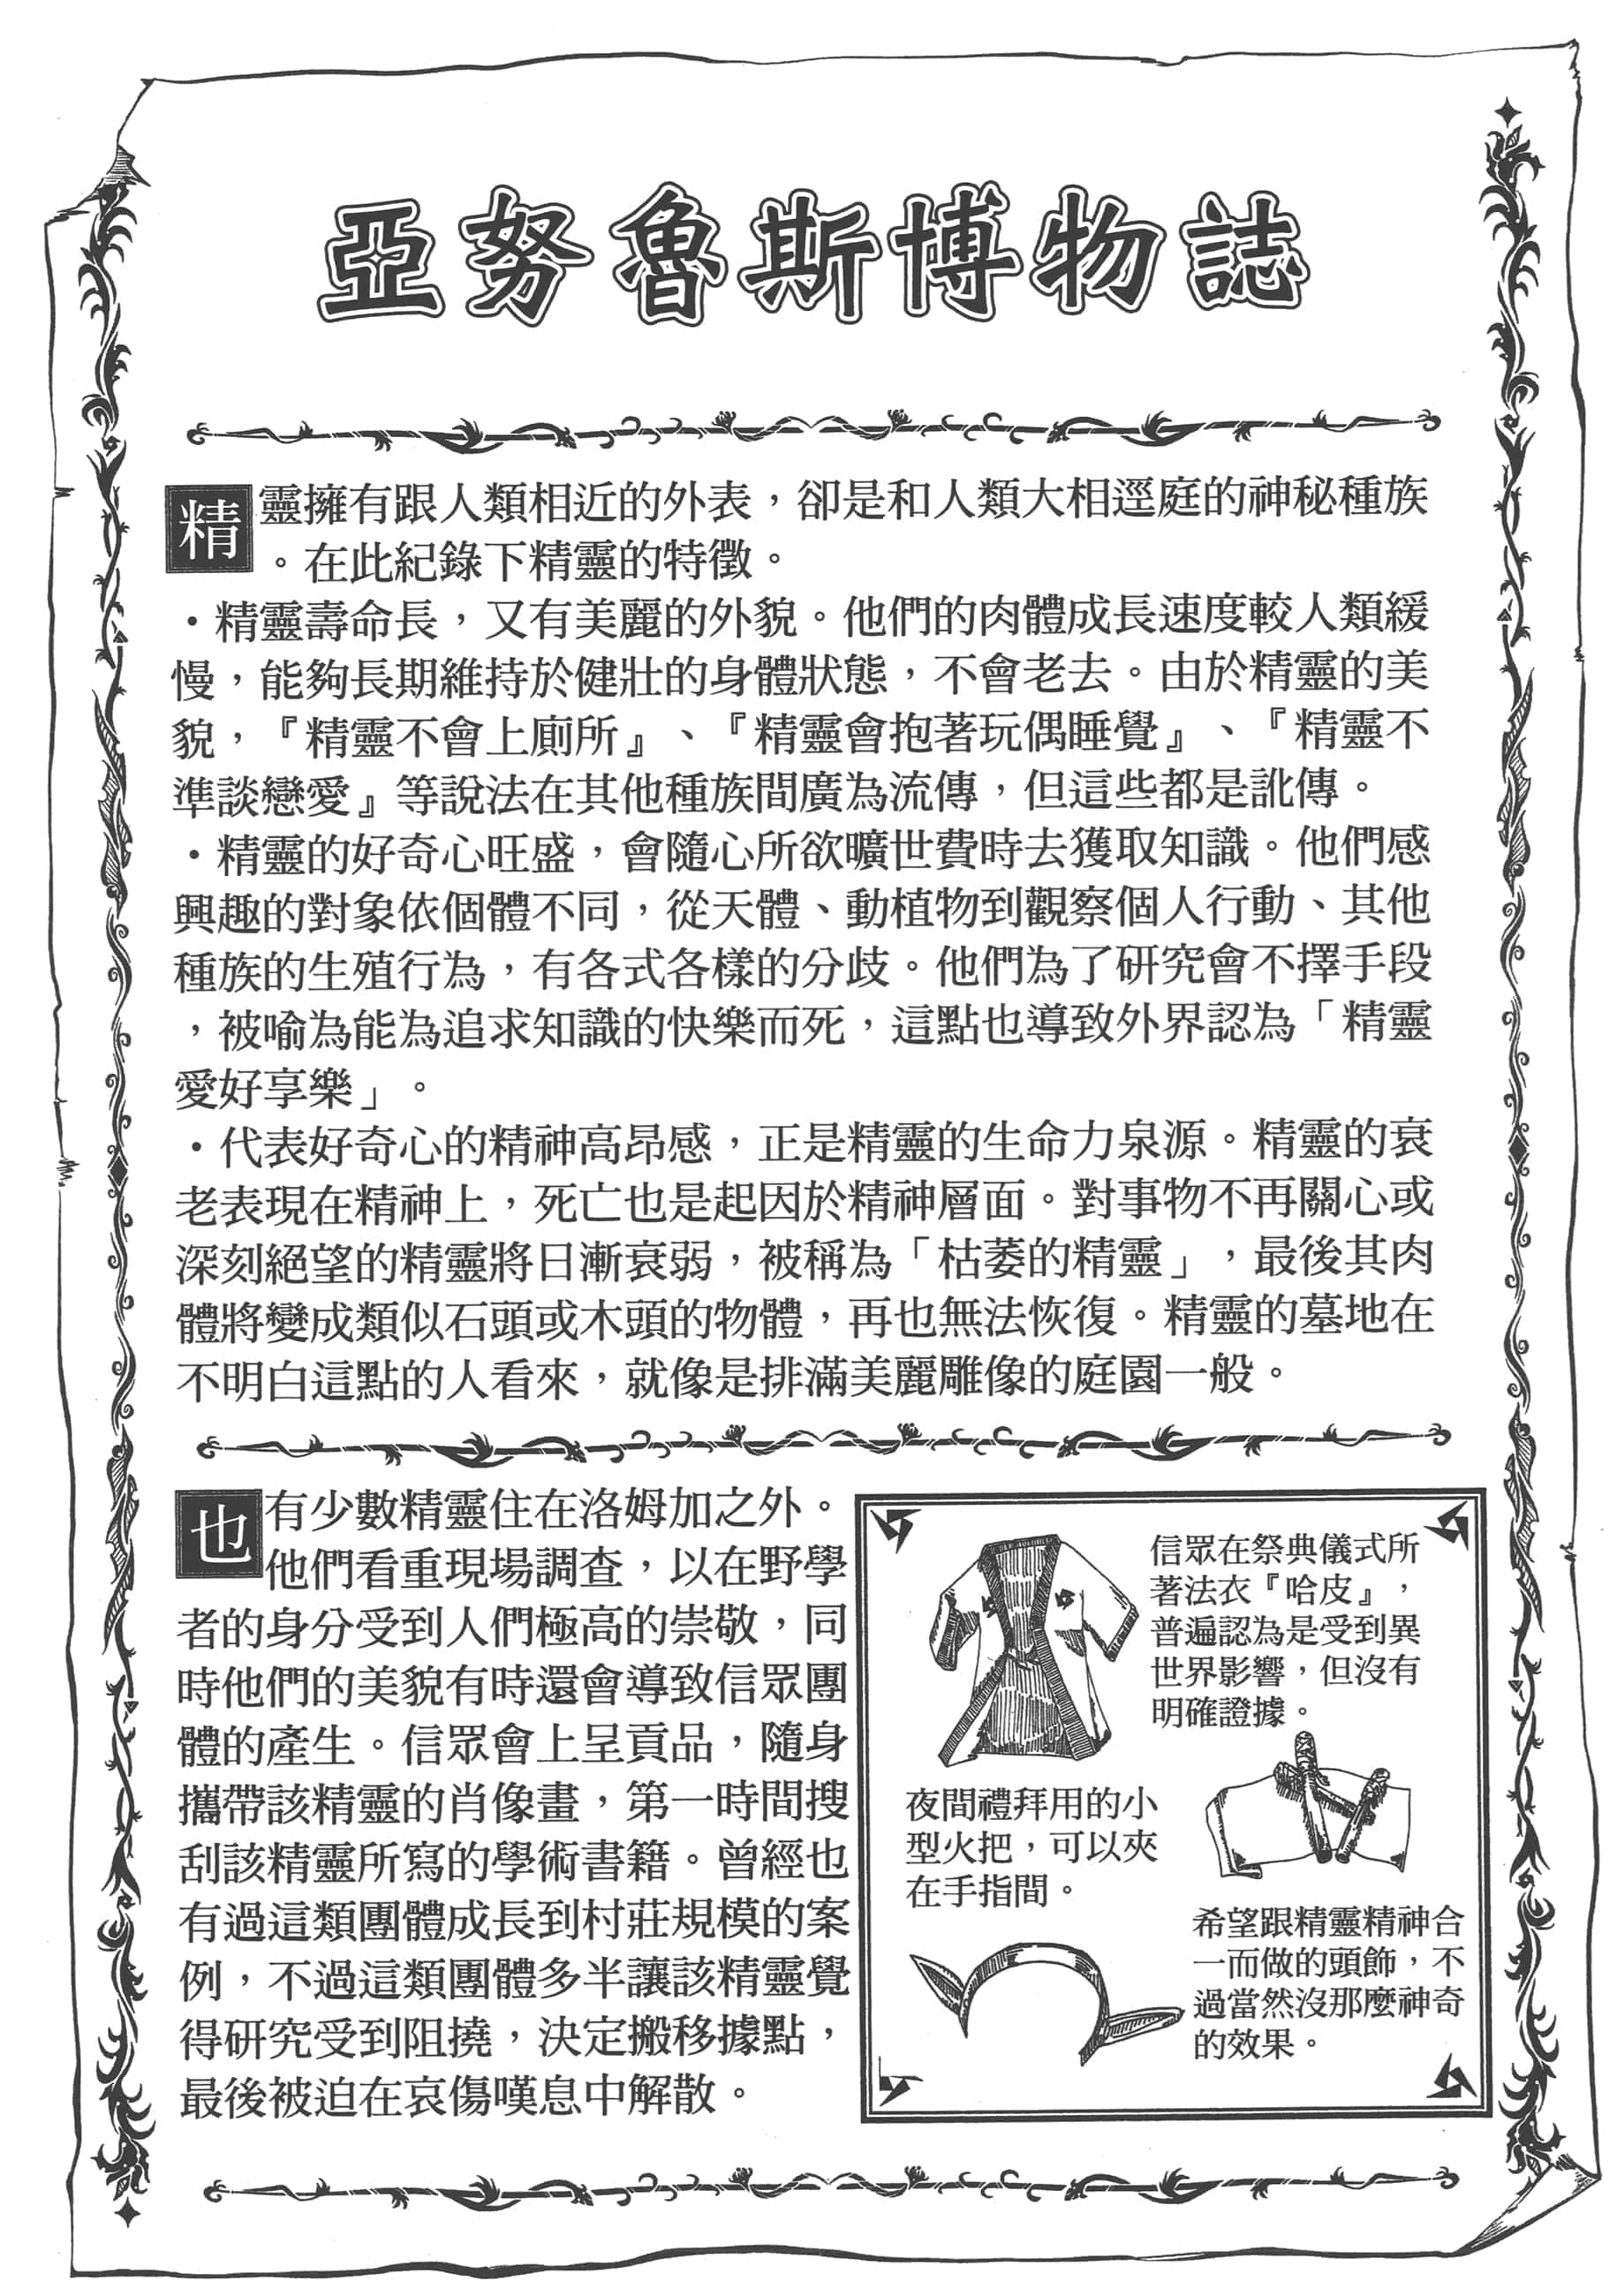 亞努魯斯博物誌
精靈擁有跟人類相近的外表，卻是和人類大相逕庭的神秘種族
。在此紀錄下精靈的特徵。
・精靈壽命長，又有美麗的外貌。他們的肉體成長速度較人類緩
慢，能夠長期維持於健壯的身體狀態，不會老去。由於精靈的美
貌，『精靈不會上廁所』、『精靈會抱著玩偶睡覺』、『精靈不
準談戀愛』等說法在其他種族間廣為流傳，但這些都是訛傳。
・精靈的好奇心旺盛，會隨心所欲曠世費時去獲取知識。他們感
興趣的對象依個體不同，從天體、動植物到觀察個人行動、其他
種族的生殖行為，有各式各樣的分歧。他們為了研究會不擇手段
，被喻為能為追求知識的快樂而死，這點也導致外界認為「精靈
愛好享樂」。
・代表好奇心的精神高昂感，正是精靈的生命力泉源。精靈的衰
老表現在精神上，死亡也是起因於精神層面。對事物不再關心或
深刻絕望的精靈將日漸衰弱，被稱為「枯萎的精靈」，最後其肉
體將變成類似石頭或木頭的物體，再也無法恢復。精靈的墓地在
不明白這點的人看來，就像是排滿美麗雕像的庭園一般。
也有少數精靈住在洛姆加之外。
他們看重現場調查，以在野學
者的身分受到人們極高的崇敬，同
時他們的美貌有時還會導致信眾團
體的產生。信眾會上呈貢品，隨身
攜帶該精靈的肖像畫，第一時間搜
刮該精靈所寫的學術書籍。曾經也
有過這類團體成長到村莊規模的案
例，不過這類團體多半讓該精靈覺
得研究受到阻撓，決定搬移據點，
最後被迫在哀傷嘆息中解散。
信眾在祭典儀式所
著法衣『哈皮』，
普遍認為是受到異
世界影響，但沒有
明確證據。
夜間禮拜用的小
型火把，可以夾
在手指間。
希望跟精靈精神合
一而做的頭飾，不
過當然沒那麼神奇
的效果。